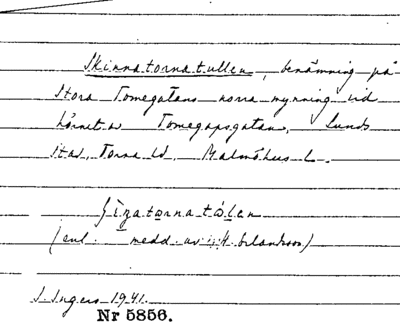 Skinnatornatullen, benämning på
Stora Tomegatans norra mynning vid
hörnet av Tomegapsgatan, Lunds
stad, Torna hd, Malmöhus l.
(enl. medd. av
I. Ingers 1941.
Nr 5856.